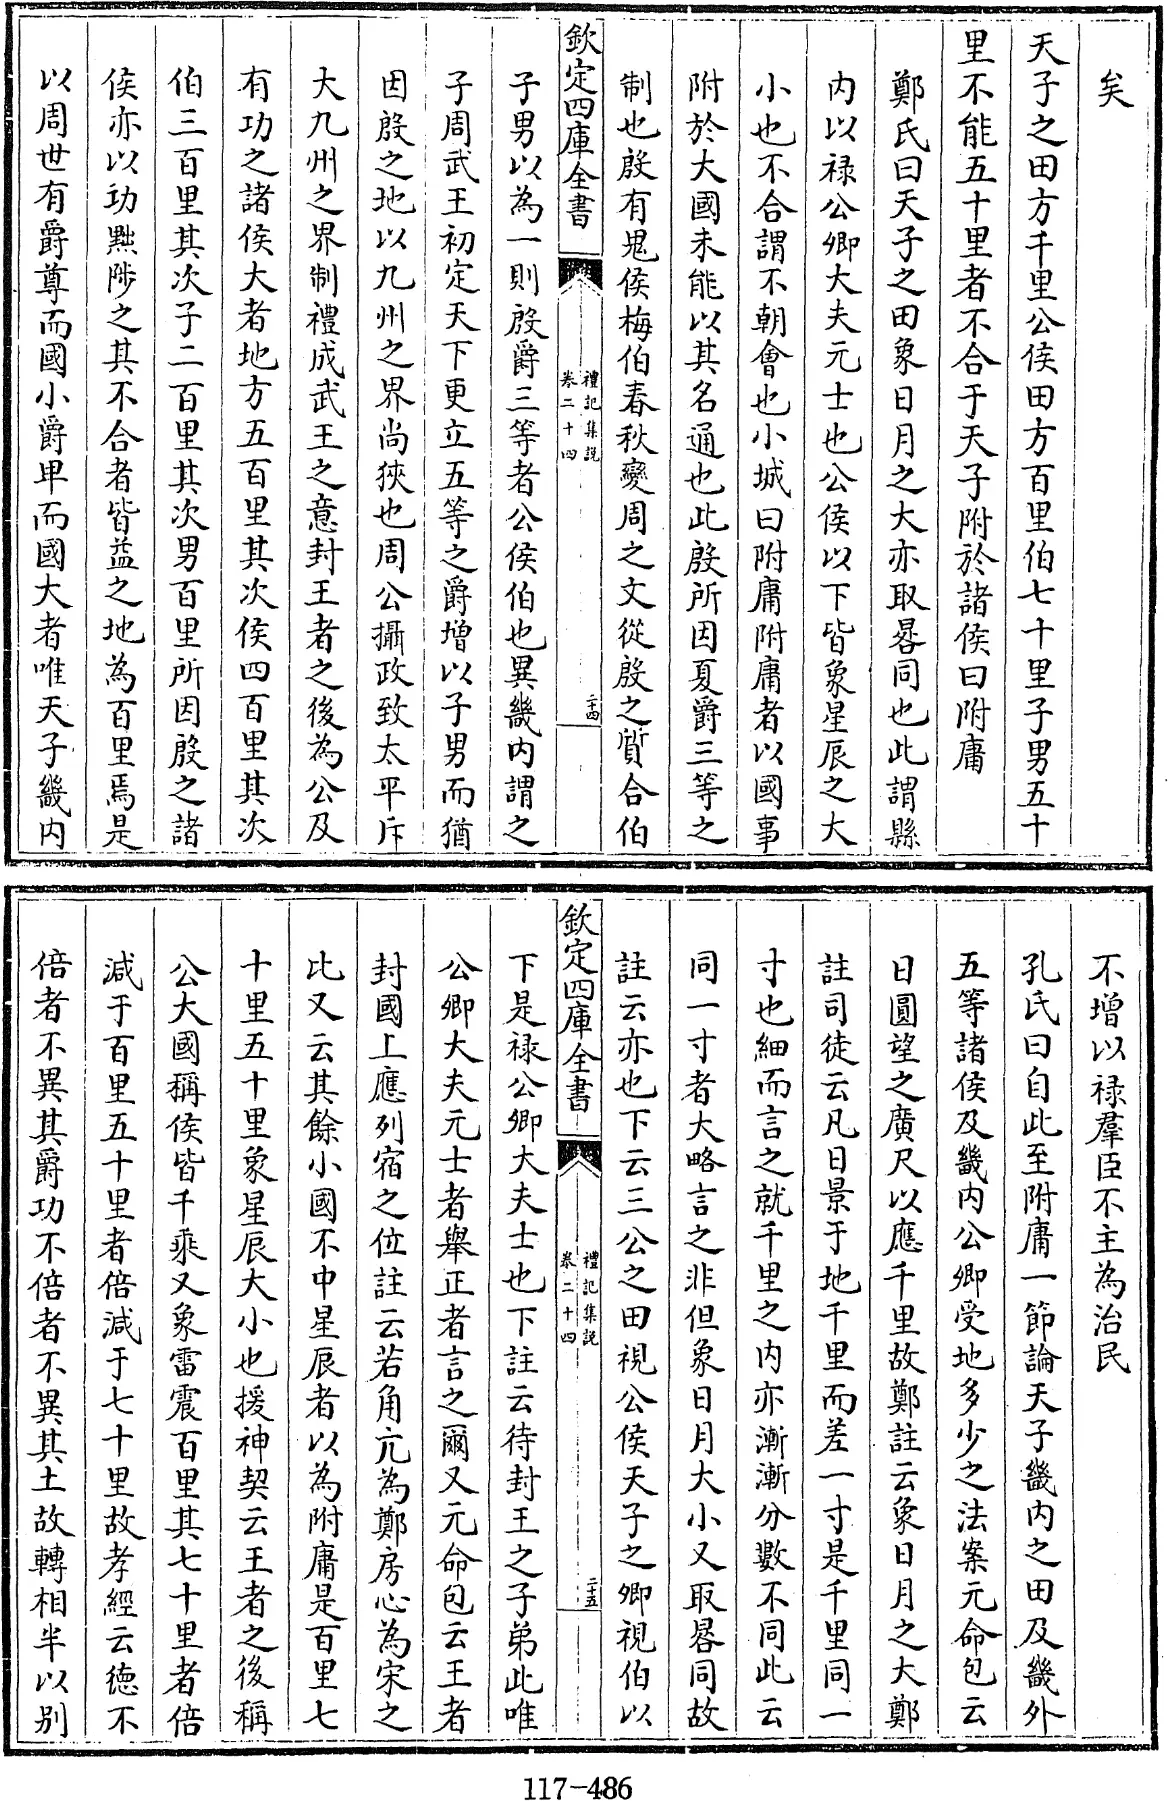 矣
天子之田方千里公侯田方百里伯七十里子男五十
里不能五十里者不合于天子附於諸侯曰附庸
鄭氏曰天子之田象日月之大亦取晷同也此謂縣
内以禄公卿大夫元士也公侯以下皆象星辰之大
小也不合謂不朝會也小城曰附庸附庸者以國事
附於大國未能以其名通也此殷所因夏爵三等之
制也殷有鬼侯梅伯春秋變周之文從殷之質合伯
欽定四庫全書
禮記集說
卷二十四
二十四
子男以為一則殷爵三等者公侯伯也異畿内謂之
子周武王初定天下更立五等之爵增以子男而猶
因殷之地以九州之界尚狹也周公攝政致太平斥
大九州之界制禮成武王之意封王者之後為公及
有功之諸侯大者地方五百里其次侯四百里其次
伯三百里其次子二百里其次男百里所因殷之諸
侯亦以功黜陟之其不合者皆益之地為百里焉是
以周世有爵尊而國小爵卑而國大者唯天子畿内
不增以禄羣臣不主為治民
孔氏曰自此至附庸一節論天子畿内之田及畿外
五等諸侯及畿内公卿受地多少之法案元命包云
日圓望之廣尺以應千里故鄭註云象日月之大鄭
註司徒云凡日景于地千里而差一寸是千里同一
寸也細而言之就千里之内亦漸漸分數不同此云
同一寸者大略言之非但象日月大小又取晷同故
註云亦也下云三公之田視公侯天子之卿視伯以
欽定四庫全書
禮記集說
卷二十四
二十五
下是禄公卿大夫士也下註云待封王之子弟此唯
公卿大夫元士者舉正者言之爾又元命包云王者
封國上應列宿之位註云若角亢為鄭房心為宋之
比又云其餘小國不中星辰者以為附庸是百里七
十里五十里象星辰大小也援神契云王者之後稱
公大國稱侯皆千乘又象雷震百里其七十里者倍
減于百里五十里者倍減于七十里故孝經云德不
倍者不異其爵功不倍者不異其土故轉相半以別
117-486